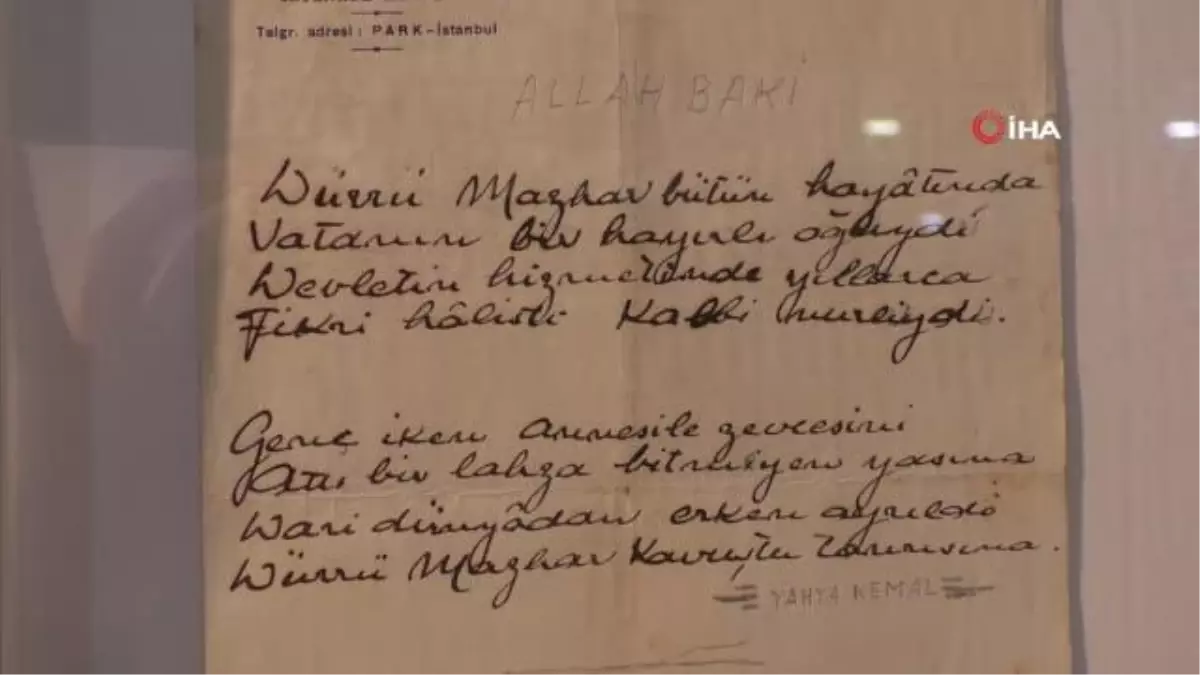 Telgr. adresi : PARK-İstanbul
ALLAH BAKİ
İHA
Dürrü Mazhar bütün hayâtında
Vatanın bir hayırlı oğluydi
Devletin hizmetinde yıllarca
Fikri hâlisti Kalbi nurluydi.
Genç iken annesile zevcesini
bir lahza bitmiyen yasına
Dari dünyâdan erken ayrıldı
Dürrü Mazhar Kavuştu tanrısına.
YAHYA KEMAL